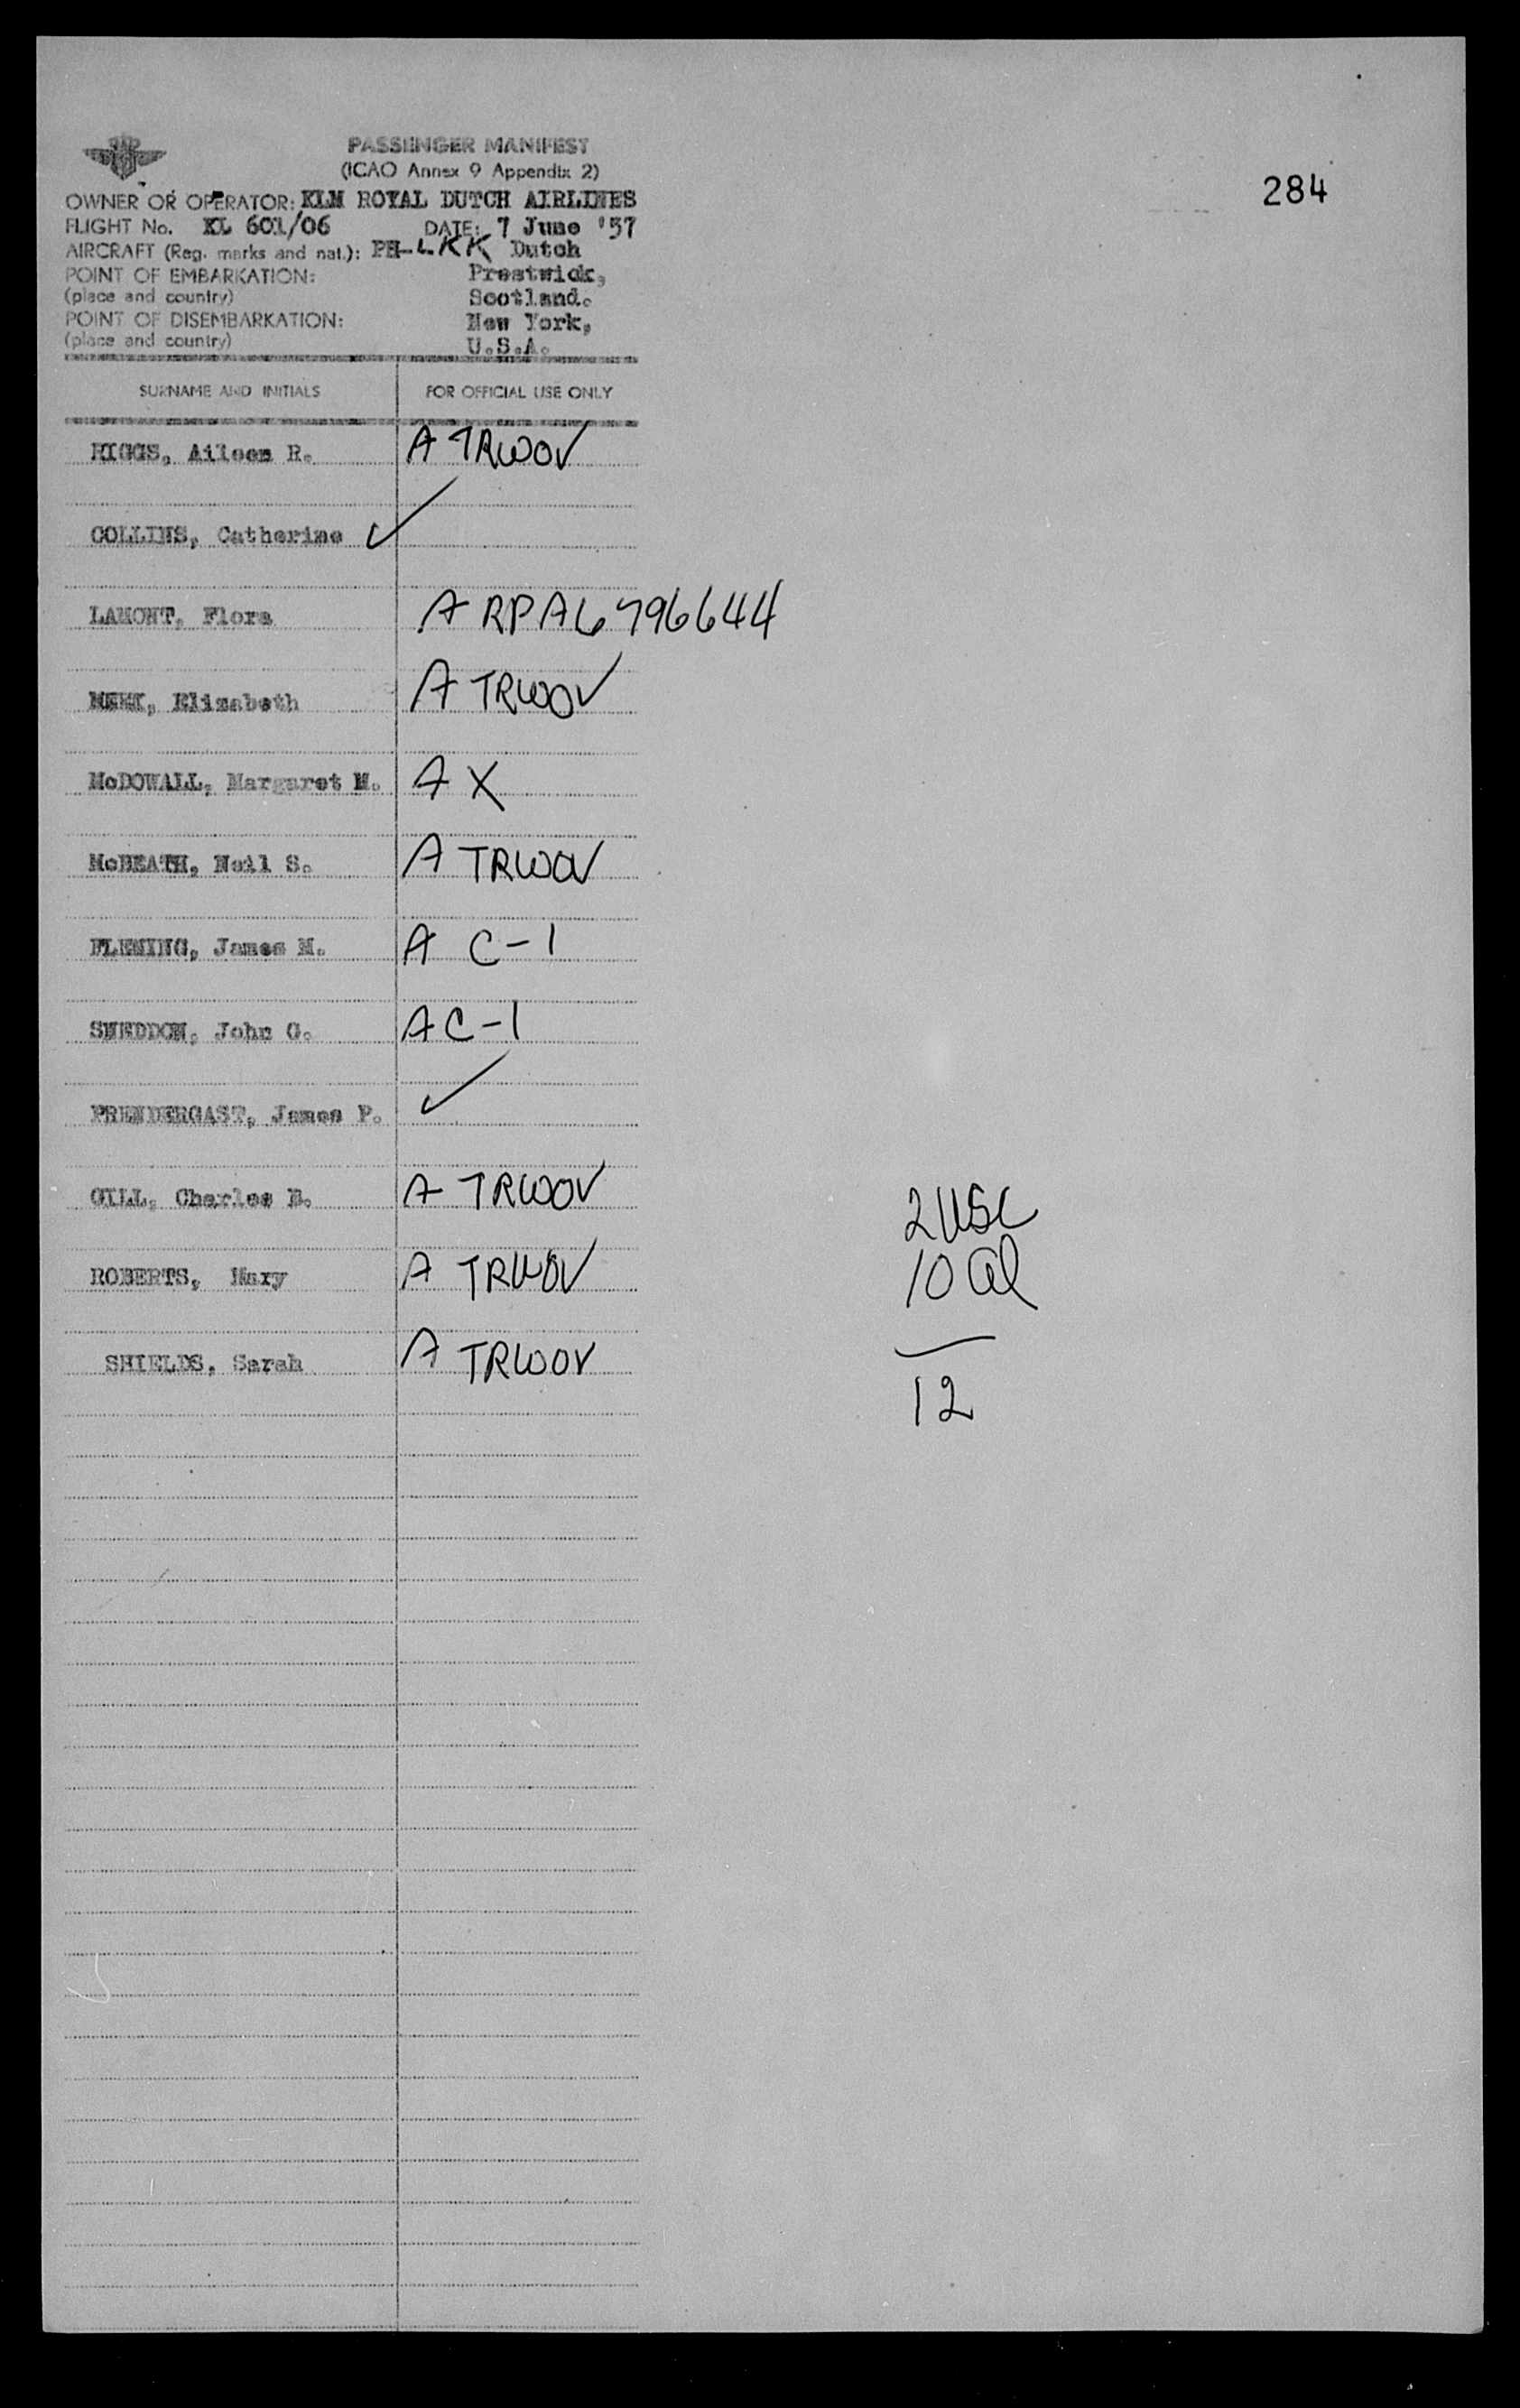 284
PASSENGER MANIFEST
(ICAO Annex 9 Appendix 2)
OWNER OR OPERATOR: KLM ROYAL DUTCH AIRLINES
FLIGHT No. KL 601/06 DATE: 7 June '57
AIRCRAFT (Reg. marks and nat.): PH-LKK Dutch
POINT OF EMBARKATION: Prestwick,
(place and country) Scotland.
POINT OF DISEMBARKATION: New York,
(place and country) U.S.A.
SURNAME AND INITIALS FOR OFFICIAL USE ONLY
RIGGS, Aileen R. A TRWOV
COLLINS, Catherine ✓
LAMONT, Flora A RPA6796644
MEEK, Elizabeth A TRWOV
McDOWALL, Margaret M. A X
McBEATH, Neil S. A TRWOV
FLEMING, James M. A C-1
SNEDDON, John G. A C-1
PRENDERGAST, James P. ✓
GILL, Charles B. A TRWOV
ROBERTS, Mary A TRWOV
SHIELDS, Sarah A TRWOV
2 USC
10 al
12